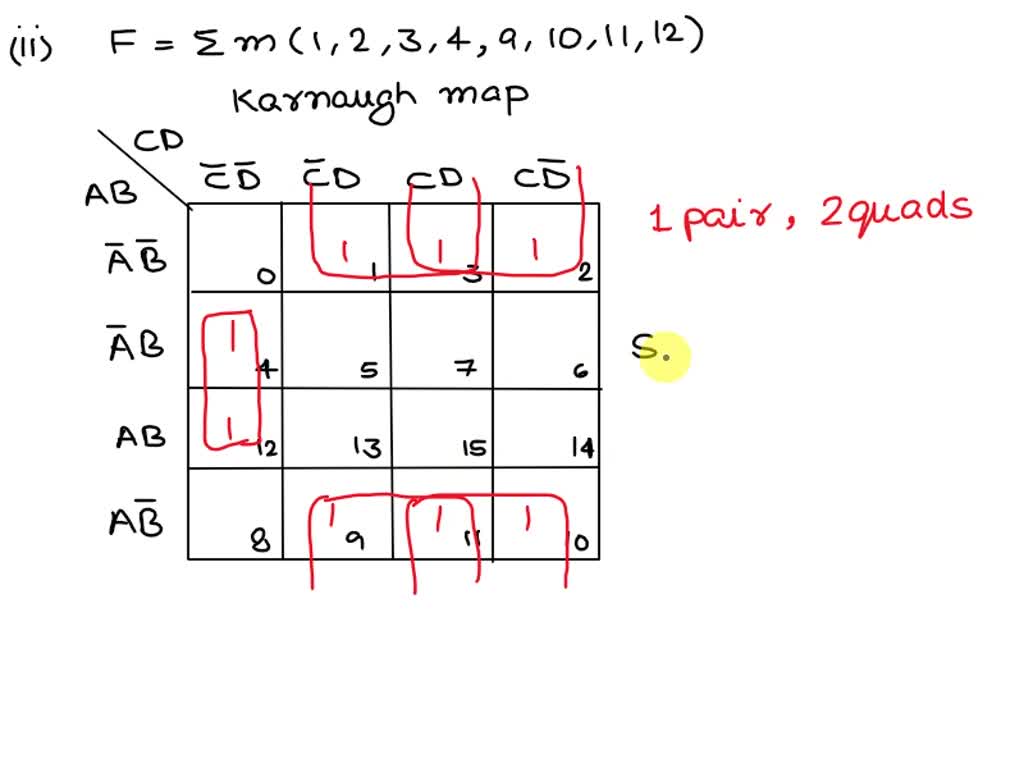 (ii) F = Σ m (1, 2, 3, 4, 9, 10, 11, 12)
Karnaugh map
CD
AB
C̅D̅ C̅D CD CD̅
1 pair, 2 quads
A̅B̅ 0 1 1 1 3 1 2
A̅B 1 4 5 7 6
S.
AB 1 12 13 15 14
AB̅ 8 1 9 1 11 1 10